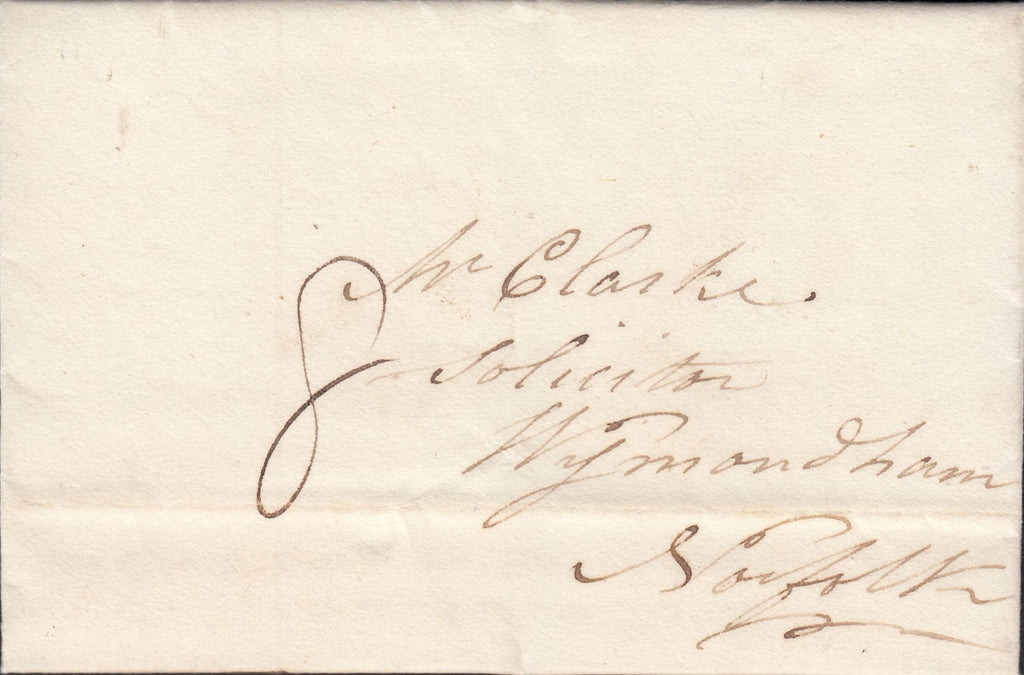 8
Mr Clarke.
Solicitor
Wymondham
Norfolk